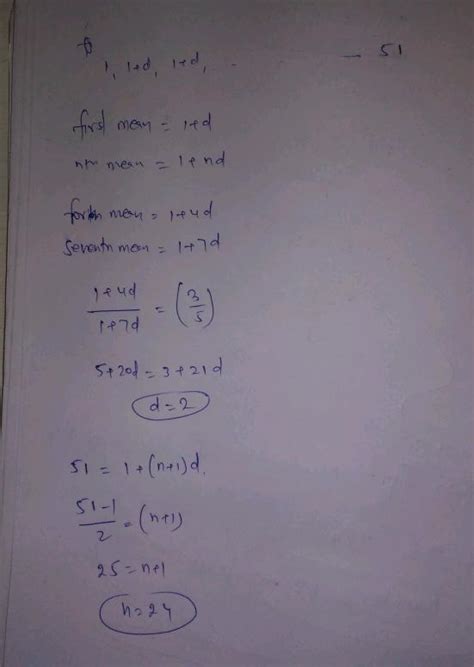 1, 1+d, 1+d, .. — 51
first mean = 1+d
nth mean = 1+nd
forth mean = 1+4d
seventh mean = 1+7d
1+4d / 1+7d = (3/5)
5+20d = 3+21d
d=2
51 = 1+(n+1)d.
51-1 / 2 = (n+1)
25 = n+1
n=24